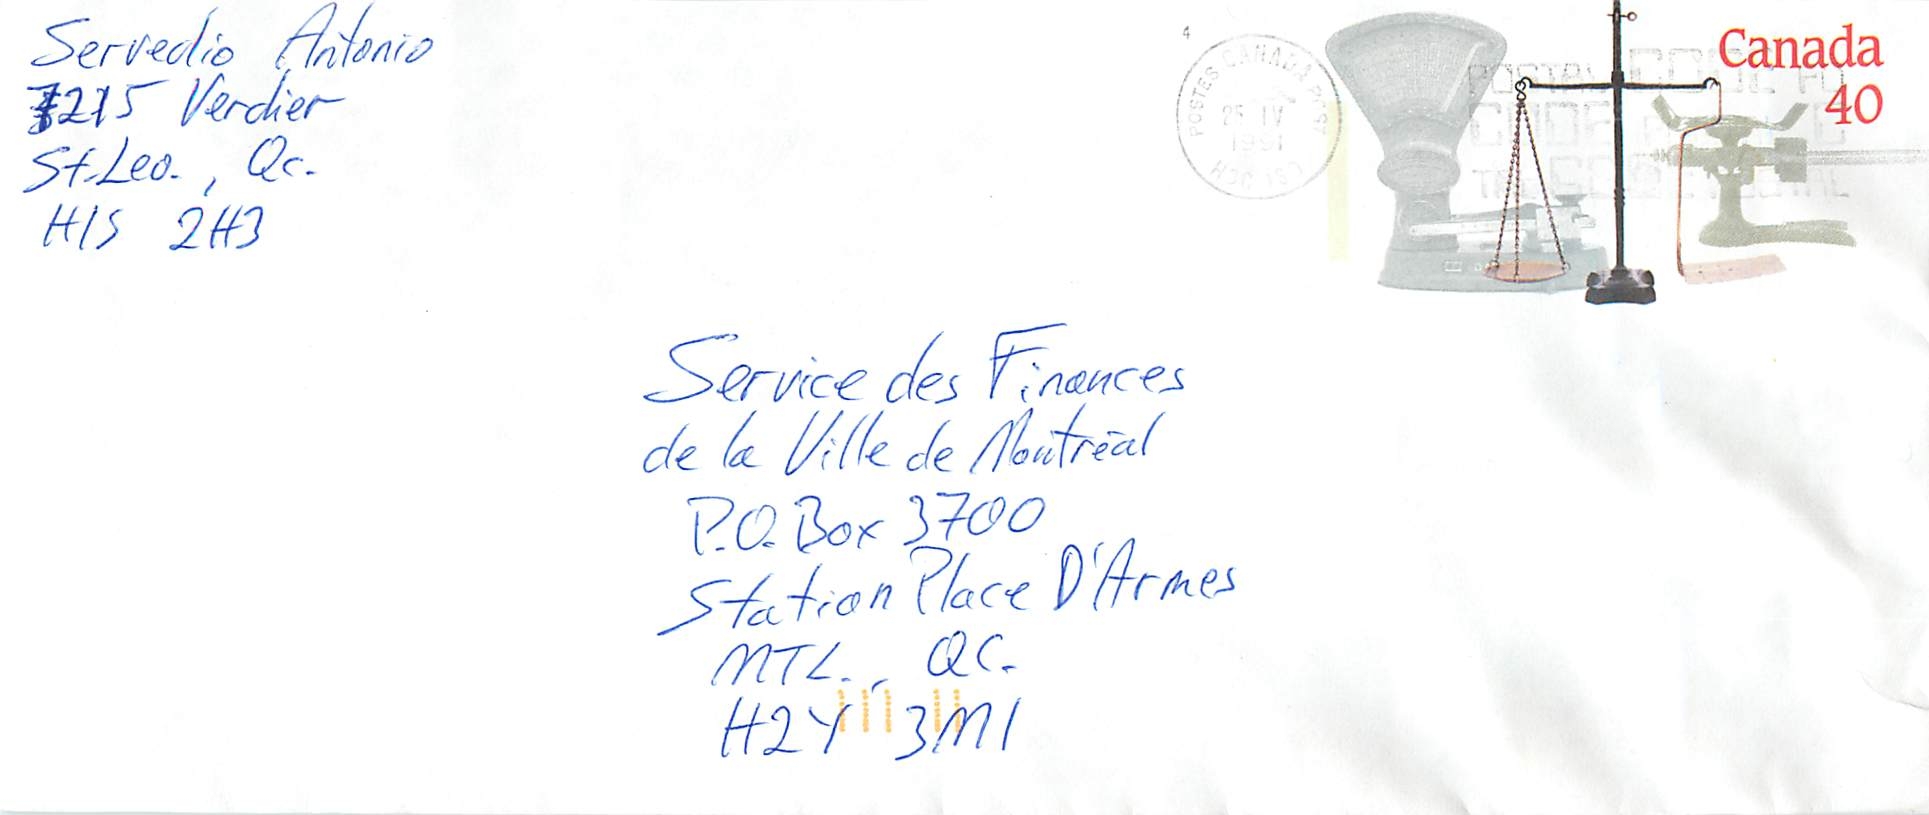 Servedio Antonio
7215 Verdier
St-Leo., Qc.
H1S 2H3
4
POSTES CANADA POST
25 IV
1991
Canada
40
Service des Finances
de la Ville de Montréal
P.O. Box 3700
Station Place D'Armes
MTL., QC.
H2Y 3M1